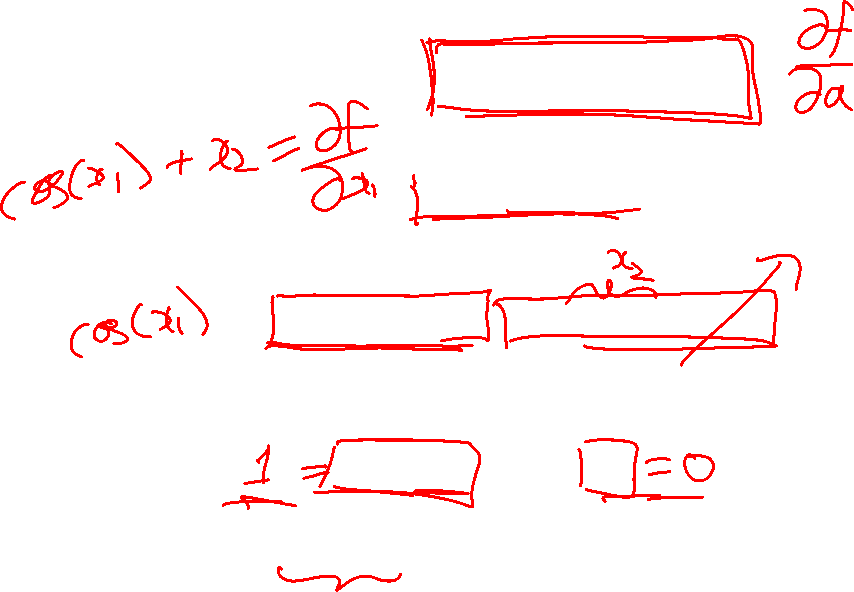 ∂f/∂a
cos(x₁) + x₂ = ∂f/∂x₁
x₂
cos(x₁)
1 =
= 0